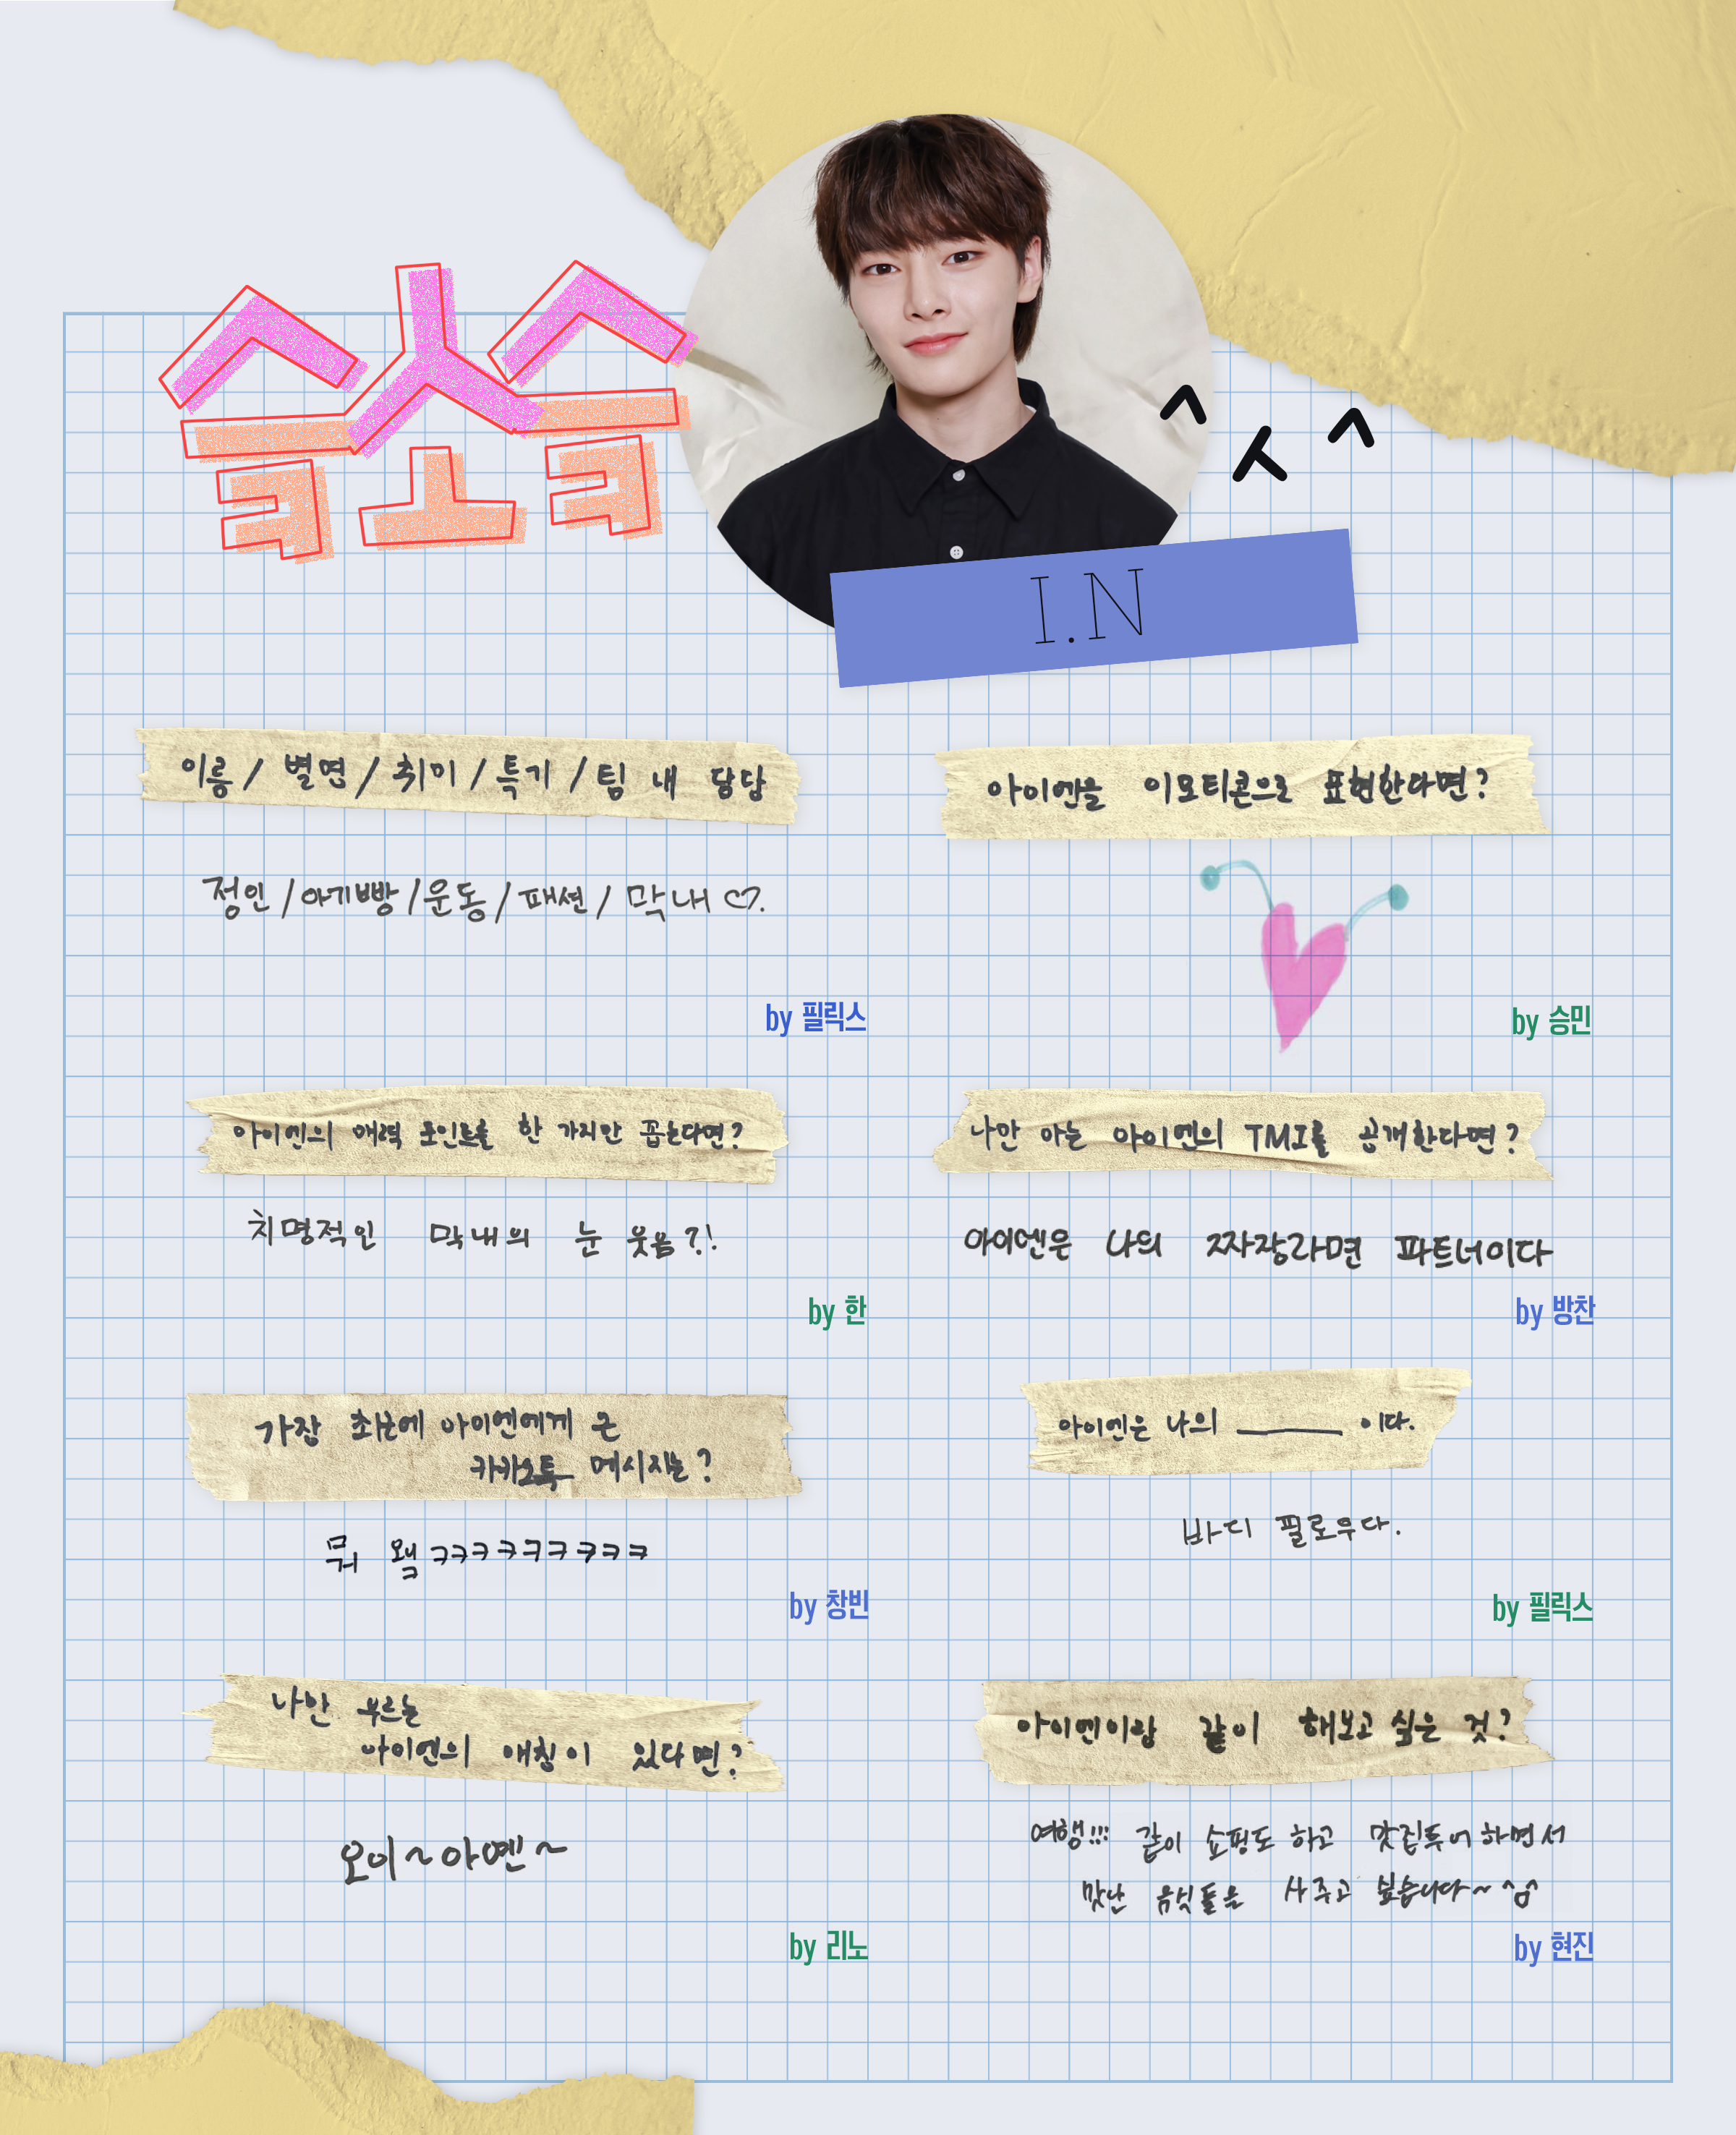 슬ㅅ슬
ㅗ
^ ㅅ ^
I.N
이름 / 별명 / 취미 / 특기 / 팀 내 담당
정인 / 아기빵 / 운동 / 패션 / 막내 ♡.
by 필릭스
아이엔을 이모티콘으로 표현한다면?
by 승민
아이엔의 매력 포인트를 한 가지만 꼽는다면?
치명적인 막내의 눈 웃음?!
by 한
나만 아는 아이엔의 TMI를 공개한다면?
아이엔은 나의 짜장라면 파트너이다
by 방찬
가장 최근에 아이엔에게 온
카카오톡 메시지는?
뭐 왴ㅋㅋㅋㅋㅋㅋㅋㅋㅋ
by 창빈
아이엔은 나의 ______ 이다.
바디 필로우다.
by 필릭스
나만 부르는
아이엔의 애칭이 있다면?
오이~아옌~
by 리노
아이엔이랑 같이 해보고 싶은 것?
여행!!! 같이 쇼핑도 하고 맛집투어하면서
맛난 음식들을 사주고 싶습니다~^^
by 현진